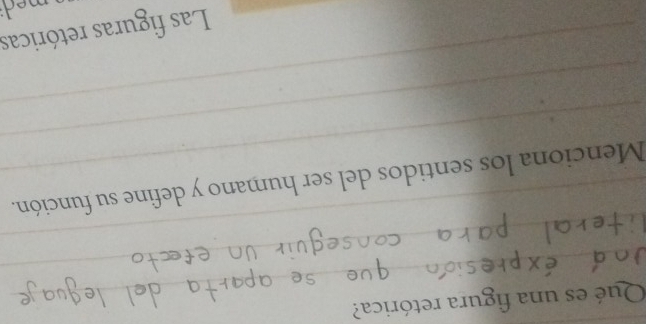 Qué es una figura retórica?
Una éxpresión que se aparta del leguaje
literal para conseguir un efecto
Menciona los sentidos del ser humano y define su función.
Las figuras retóricas